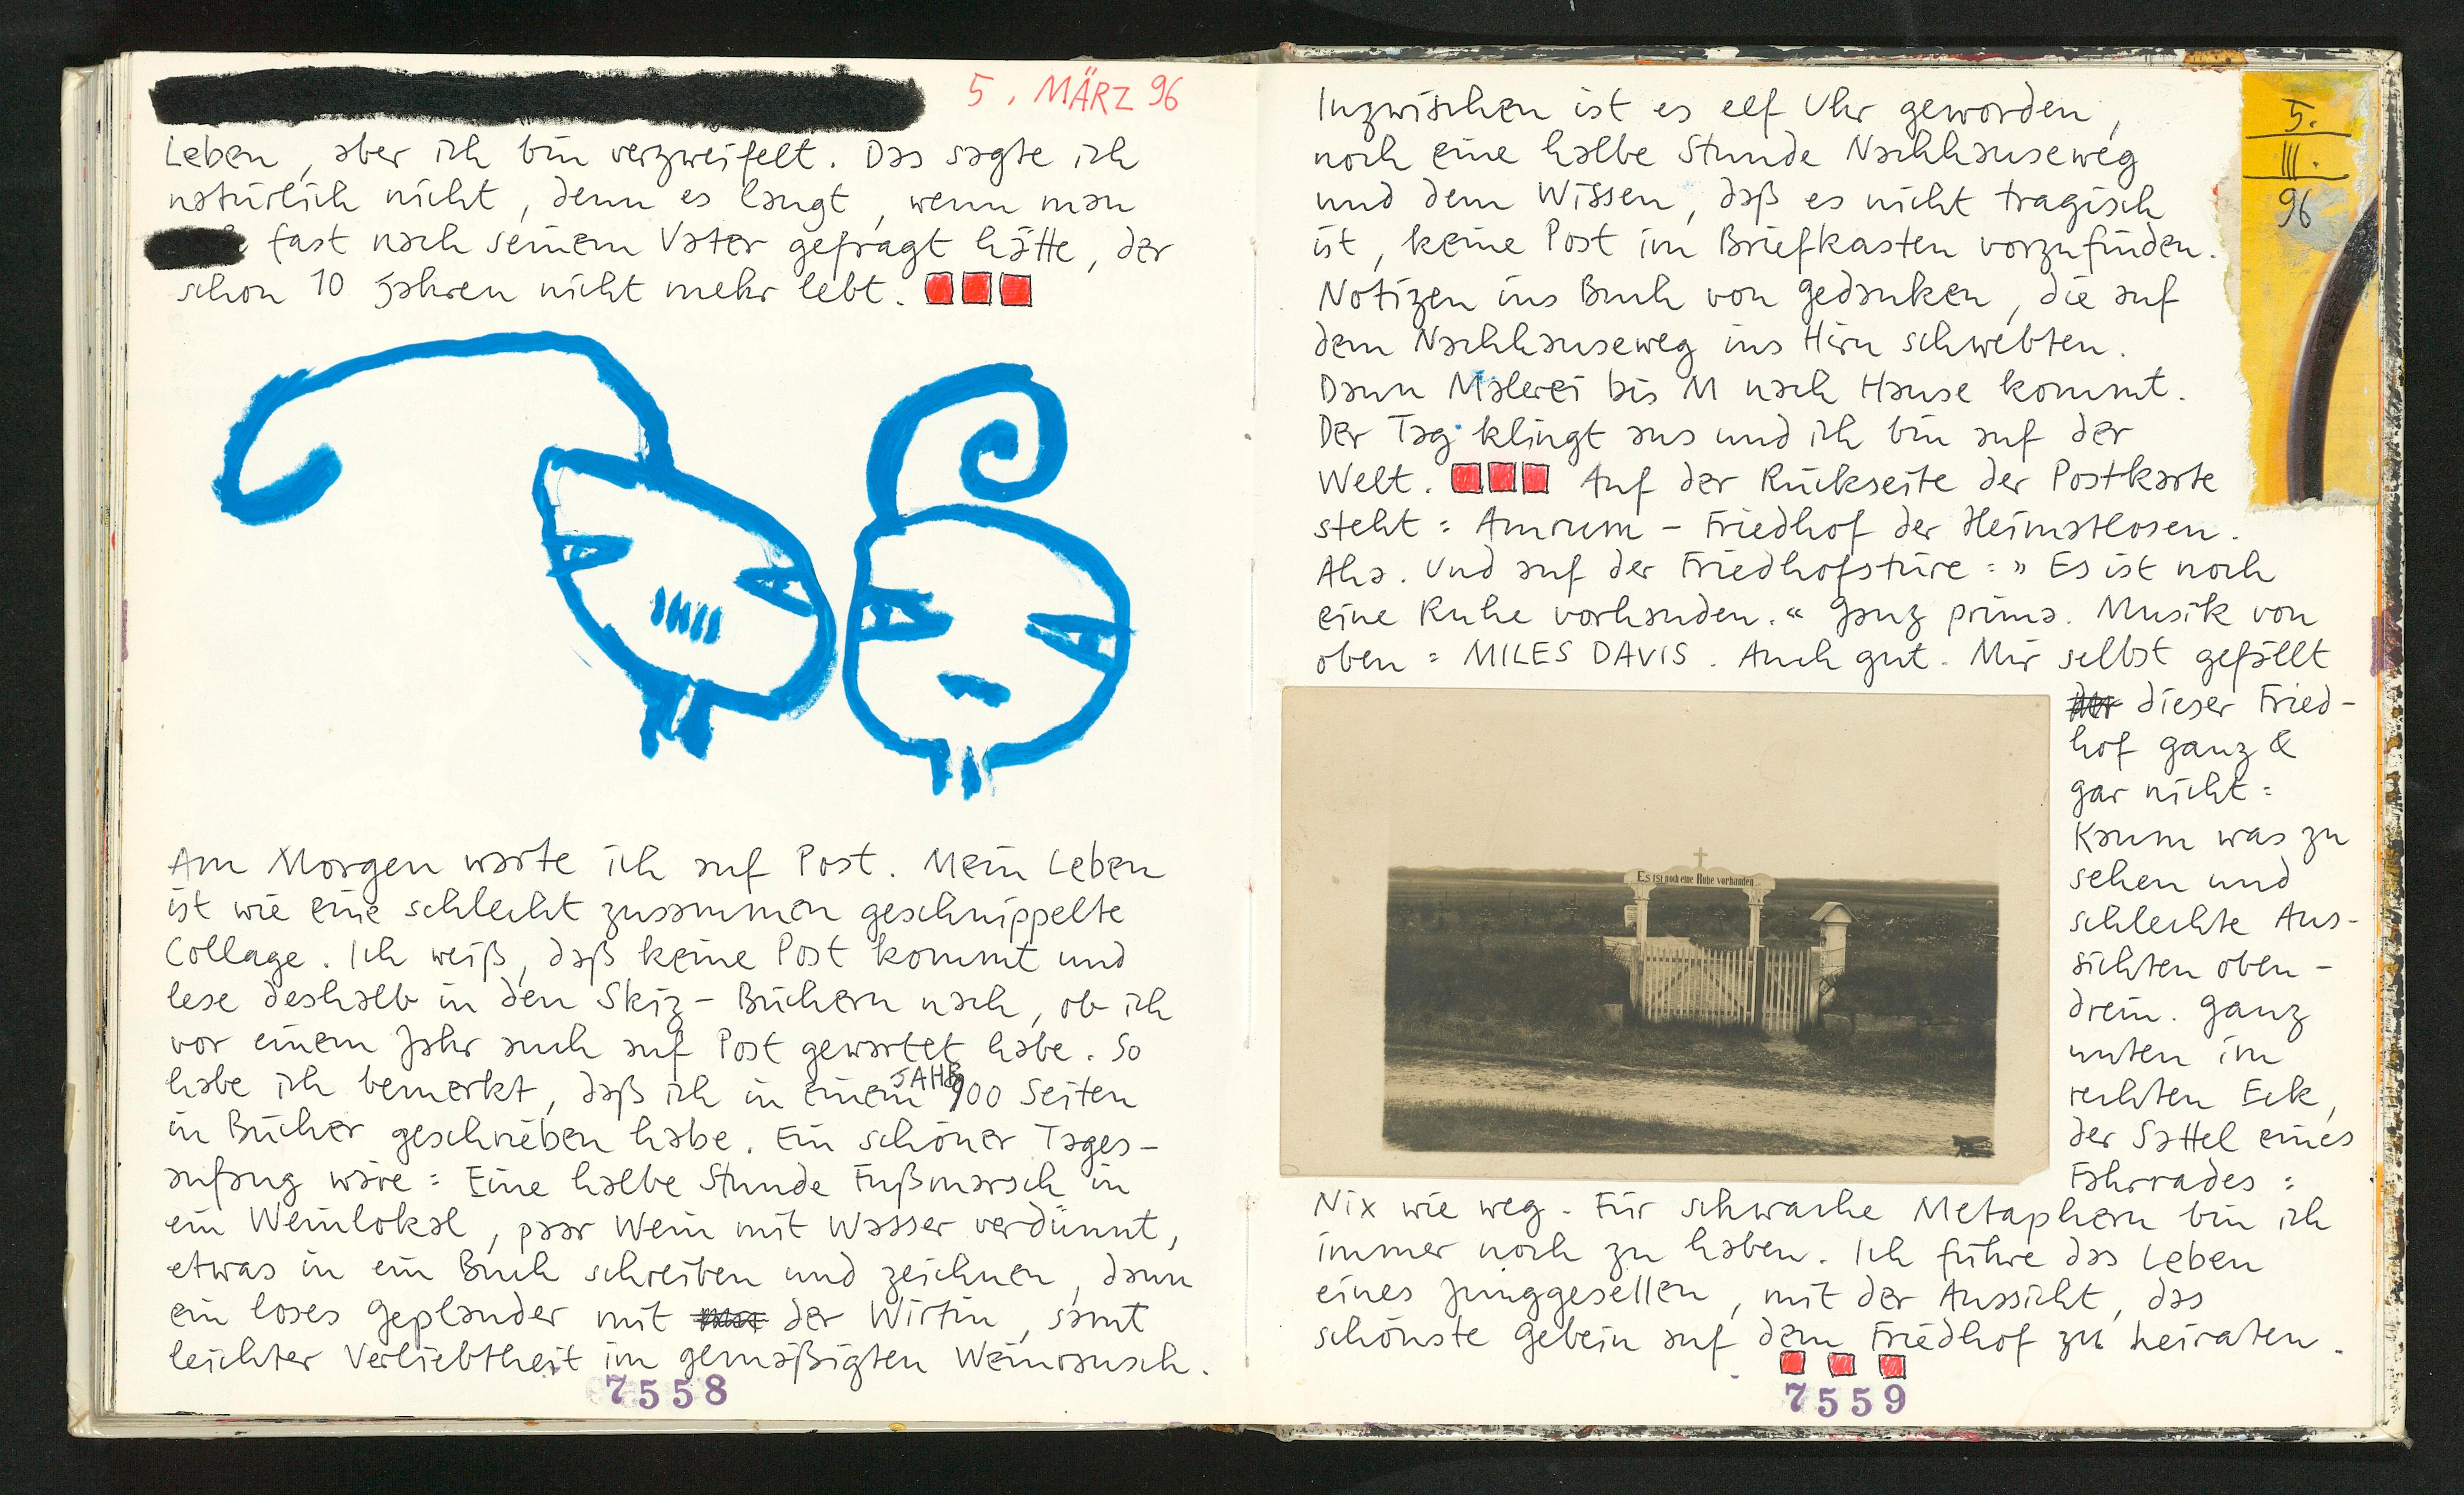 5. MÄRZ 96
Leben, aber ich bin verzweifelt. Das sagte ich
natürlich nicht, denn es langt, wenn man
fast nach seinem Vater gefragt hätte, der
schon 10 Jahren nicht mehr lebt.
Am Morgen warte ich auf Post. Mein Leben
ist wie eine schlecht zusammen geschnippelte
Collage. Ich weiß, daß keine Post kommt und
lese deshalb in den Skiz-Büchern nach, ob ich
vor einem Jahr auch auf Post gewartet habe. So
habe ich bemerkt, daß ich in einem JAHR 900 Seiten
in Bücher geschrieben habe. Ein schöner Tages-
anfang wäre: Eine halbe Stunde Fußmarsch in
ein Weinlokal, paar Wein mit Wasser verdünnt,
etwas in ein Buch schreiben und zeichnen, dann
ein loses Geplander mit der Wirtin, samt
leichter Verliebtheit im gemäßigten Weinrausch.
7558
Inzwischen ist es elf Uhr geworden,
noch eine halbe Stunde Nachhauseweg
und dem Wissen, daß es nicht tragisch
ist, keine Post im Briefkasten vorzufinden.
Notizen ins Buch von Gedanken, die auf
dem Nachhauseweg ins Hirn schwebten.
Dann Malerei bis M nach Hause kommt.
Der Tag klingt aus und ich bin auf der
Welt. Auf der Rückseite der Postkarte
steht: Amrum - Friedhof der Heimatlosen.
Aha. Und auf der Friedhofstüre: "Es ist noch
eine Ruhe vorhanden." Ganz prima. Musik von
oben: MILES DAVIS. Auch gut. Mir selbst gefällt
dieser Fried-
hof ganz &
gar nicht:
Kaum was zu
sehen und
schlechte Aus-
sichten oben-
drein. Ganz
unten im
rechten Eck,
der Sattel eines
Fahrrades:
Nix wie weg. Für schwache Metaphern bin ich
immer noch zu haben. Ich führe das Leben
eines Junggesellen, mit der Aussicht, das
schönste Gebein auf dem Friedhof zu heiraten.
7559
5.
III.
96
Es ist noch eine Ruhe vorhanden